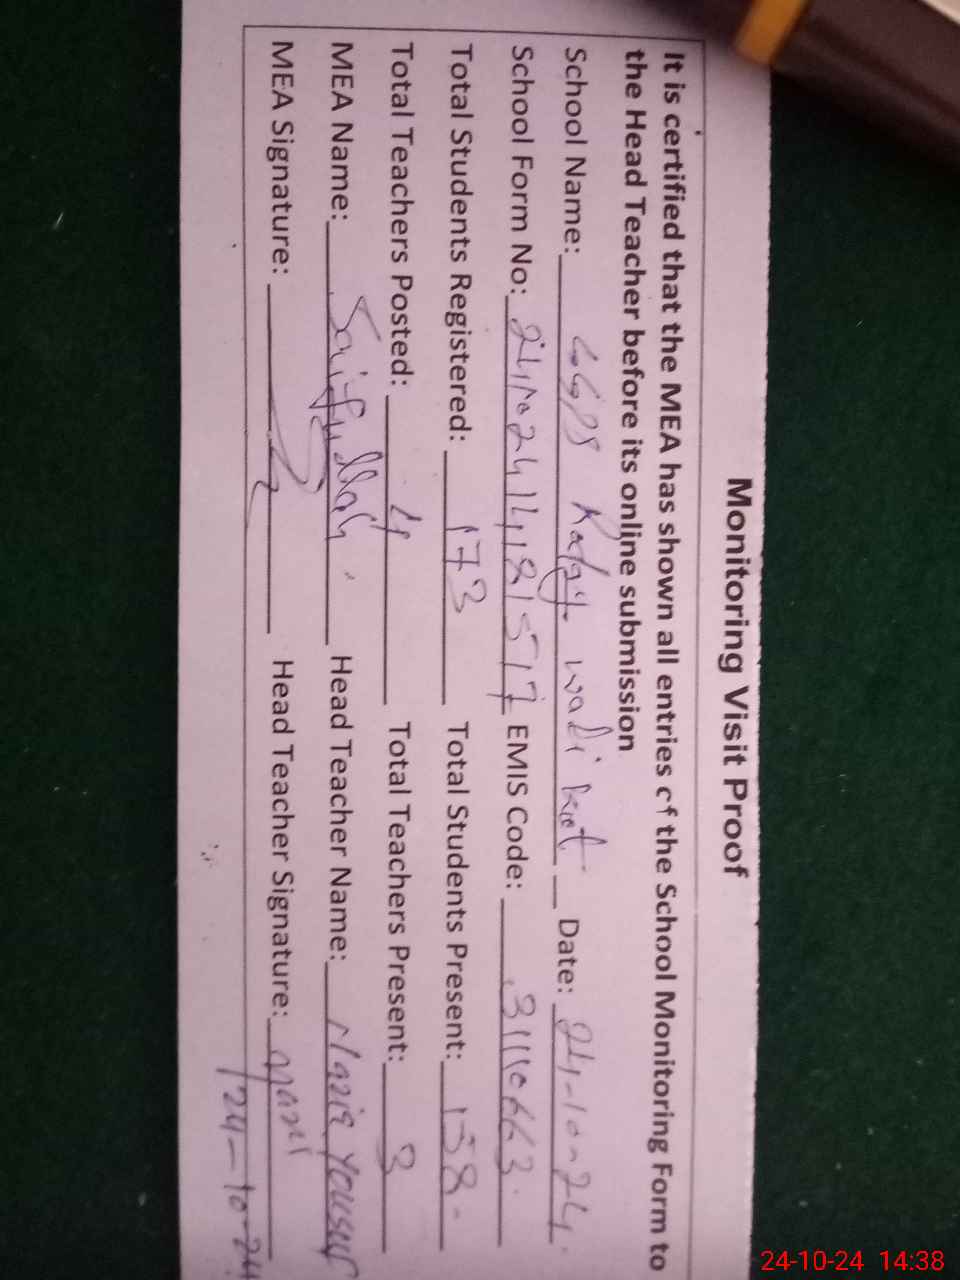 Monitoring Visit Proof
It is certified that the MEA has shown all entries of the School Monitoring Form to
the Head Teacher before its online submission
School Name: wali Date: 24-10-24
School Form No: EMIS Code: 31110663
Total Students Registered: 173 Total Students Present: 158
Total Teachers Posted: 4 Total Teachers Present: 3
MEA Name: Saifullah Head Teacher Name: Nazia Yousuf
MEA Signature: Head Teacher Signature:
24-10-24
24-10-24 14:38